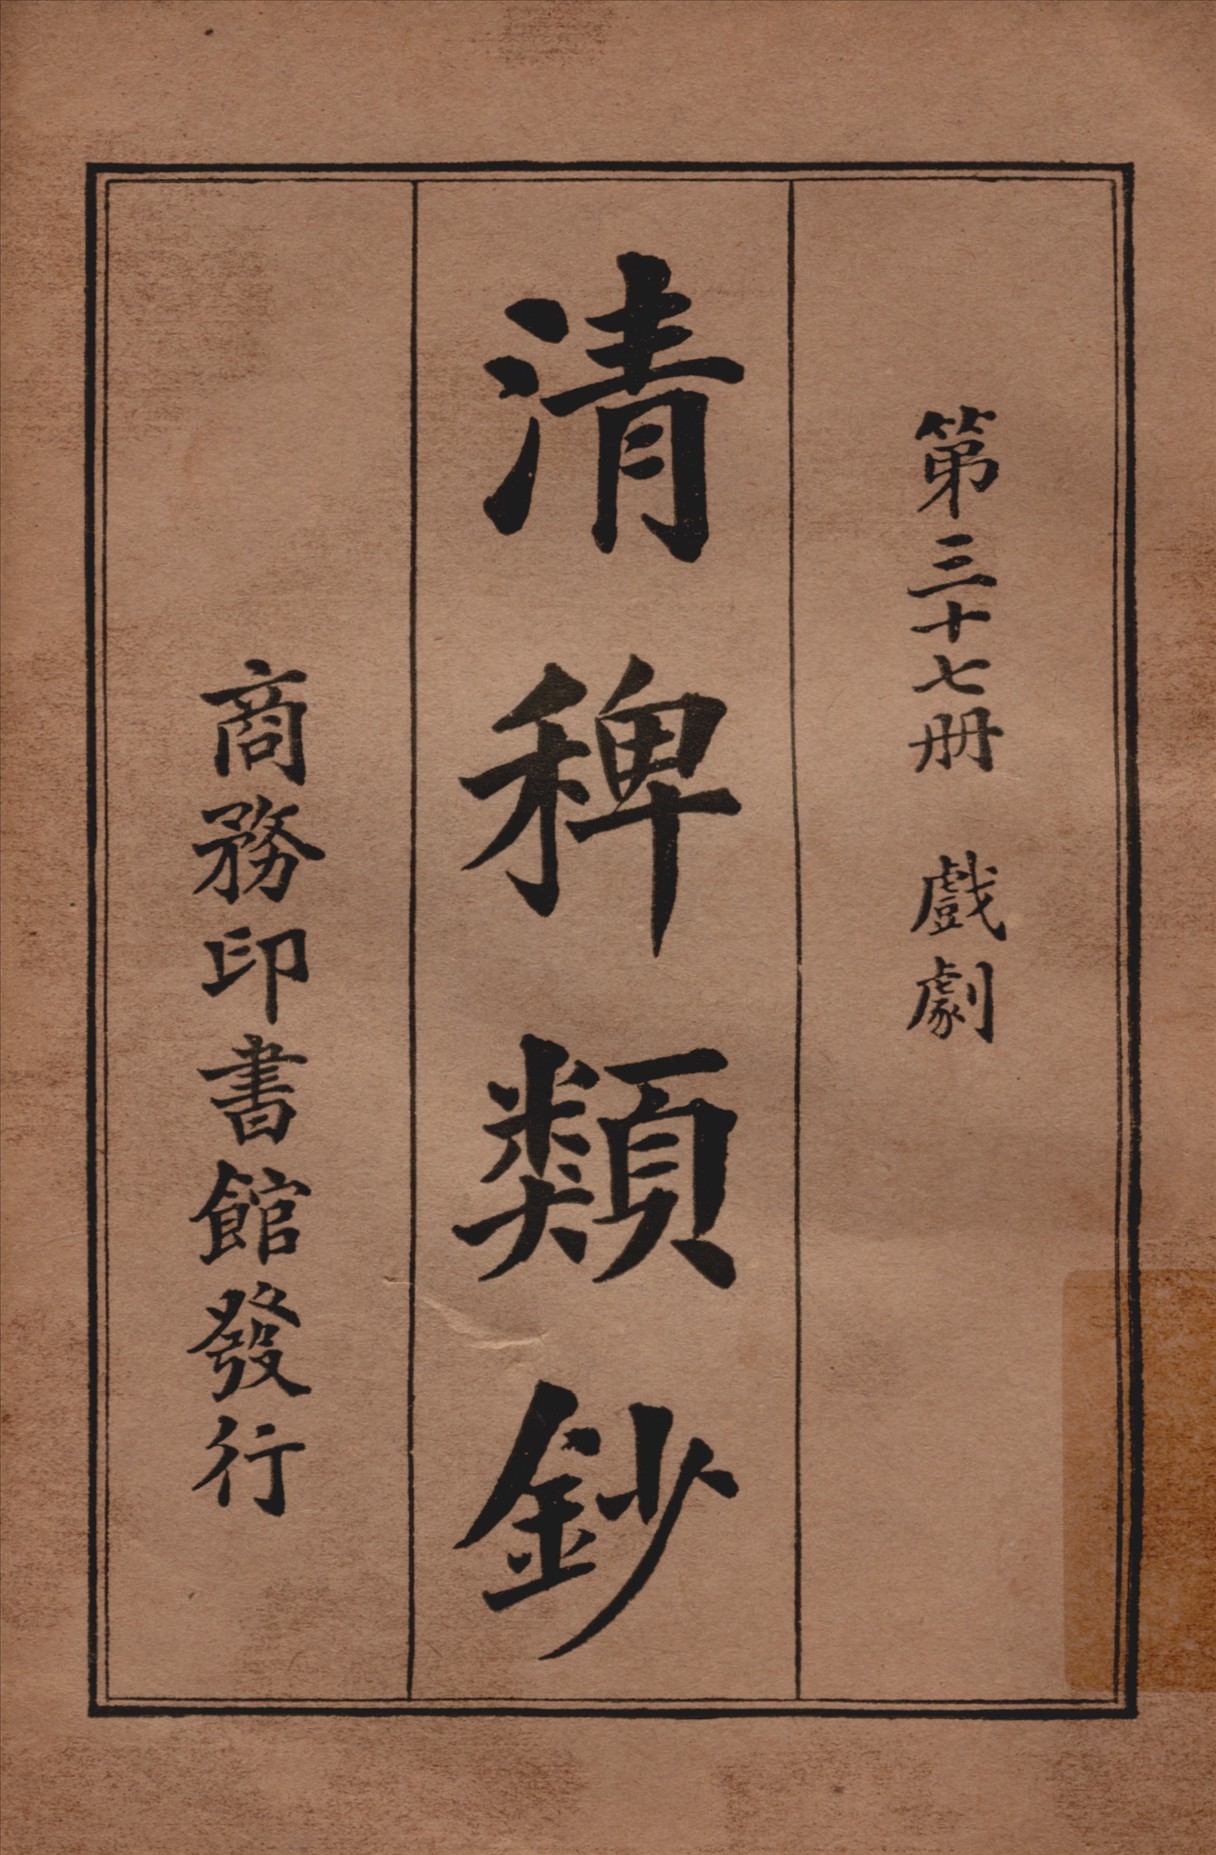 第三十七册 戲劇
清稗類鈔
商務印書館發行